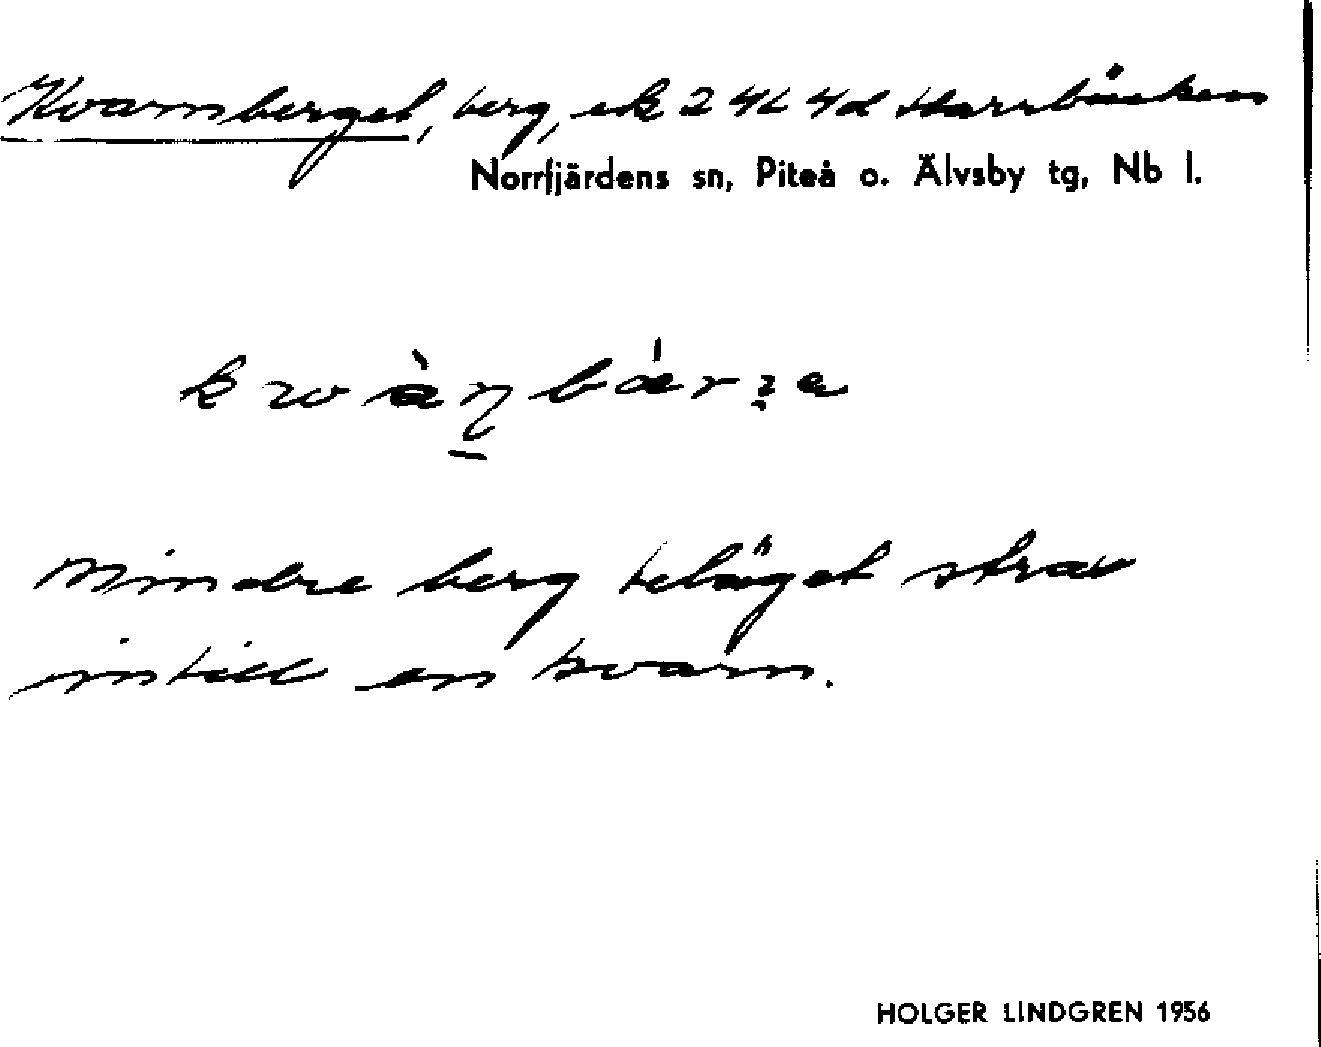 Kvarnberget, berg, ek 24L 4d Harrbäcken
Norrfjärdens sn, Piteå o. Älvsby tg, Nb l.
Mindre berg beläget strax
intill en kvarn.
HOLGER LINDGREN 1956